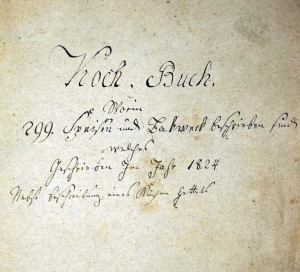 Koch. Buch.
Worin
299. Speisen und Bakwerk beschrieben sind
welches
Geschrieben Im Jahr 1824
Nebst beschreibung eines Kuchen Zettels